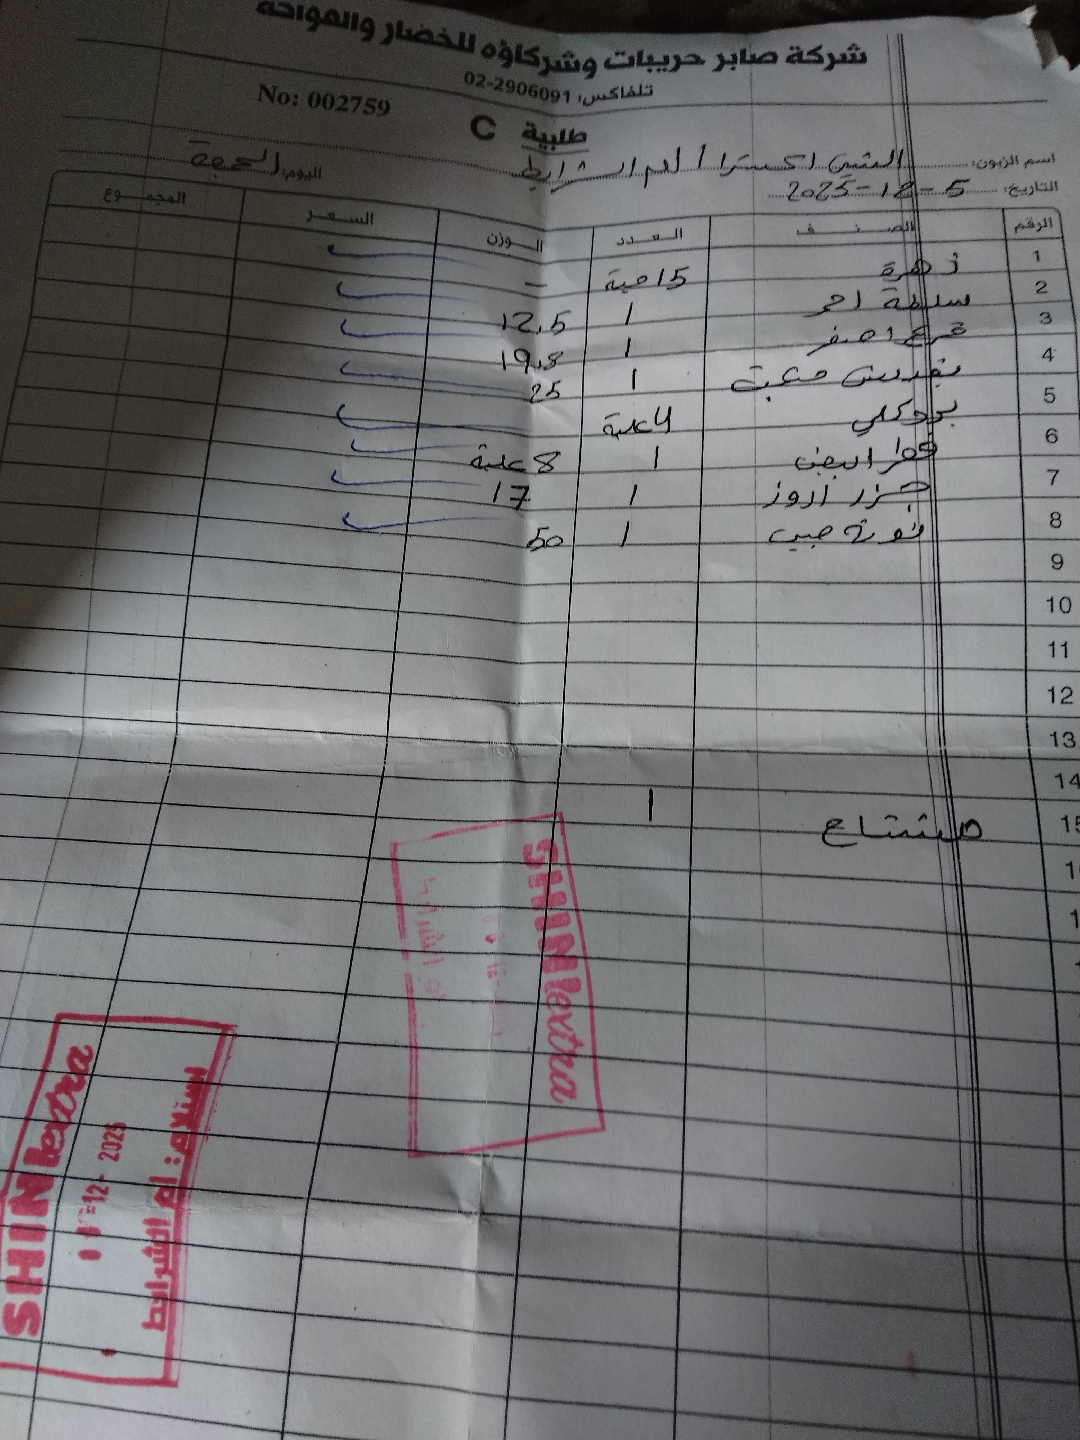 شركة صابر حريبات وشركاؤه للخضار والفواكه
تلفاكس: 02-2906091
No: 002759
طلبية C
اسم الزبون: الشني اكسترا / ام الشرايط
اليوم: الجمعة
التاريخ: 5-12-2025
الرقم الصنف العدد الوزن السعر المجموع
1 زهرة 15 حبة —
2 سلطة احمر 1 12.5
3 قرع اصفر 1 19.8
4 بقدونس 1 25
5 بروكلي 4 علبة
6 فطر ابيض 1 8 علبة
7 جزر 1 17
8 1 50
9
10
11
12
13
14
15 مشتاح 1
SHINI extra
SHINI extra
12- 2025
استلام: ام الشرايط